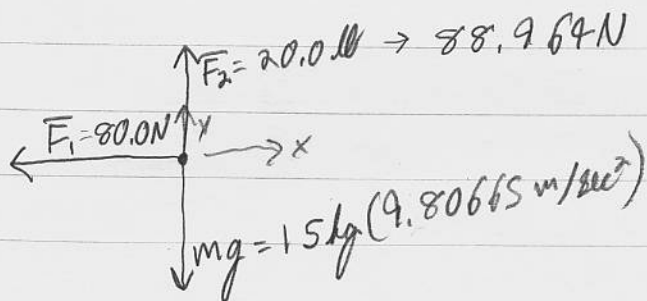 F₂ = 20.0 lb → 88.964N
F₁ = 80.0N
y
x
mg = 15 kg (9.80665 m/sec²)